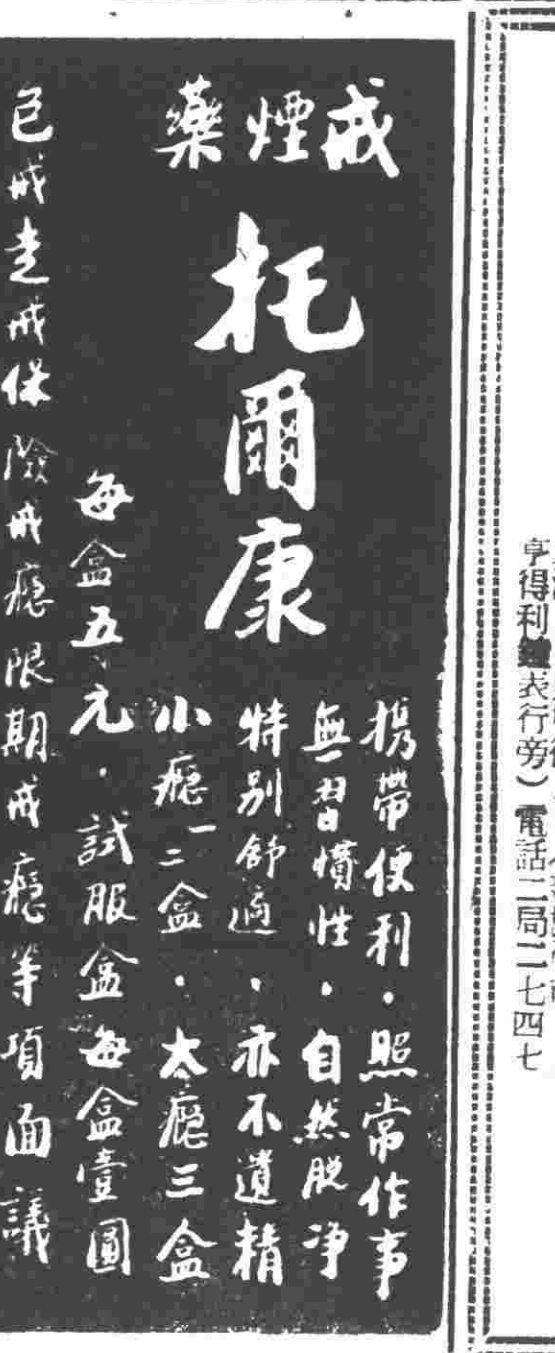 亨得利鐘表行旁）電話二局二七四七
戒煙藥
托爾康
携帶便利．照常作事
無習慣性．自然脱净
特别舒適．亦不遺精
小癮一二盒．大癮三盒
每盒五元．試服盒每盒壹圓
包戒走戒保險戒癮限期戒癮等項面議